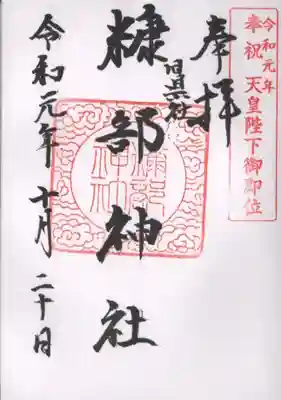 令和元年
奉祝 天皇陛下御即位
奉拝
旧県社
糠部神社
令和元年 十月 二十日